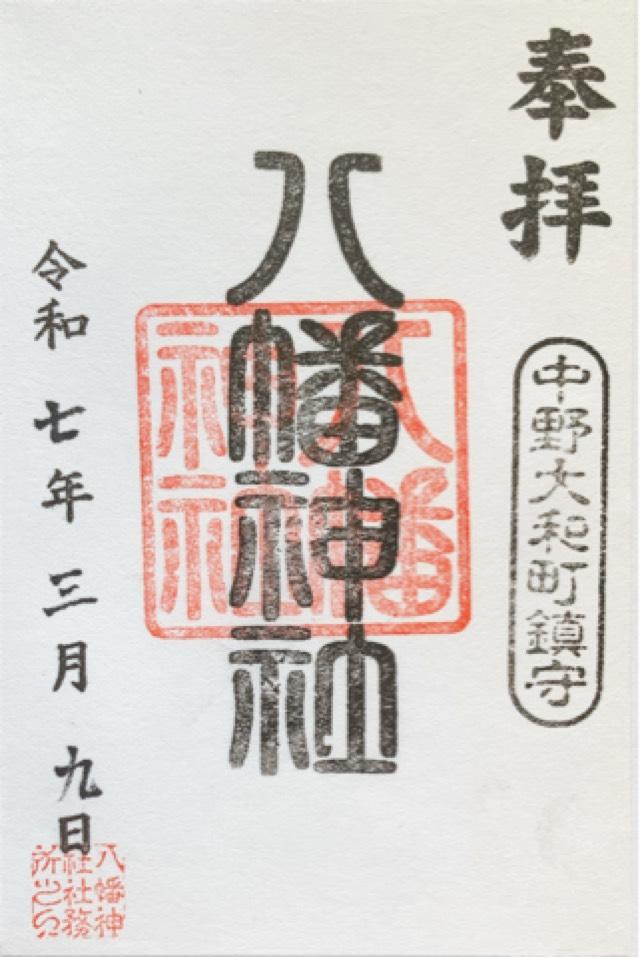 奉拝
中野大和町鎮守
八幡神社
八幡神社
令和七年三月九日
八幡神
社社務
所之印